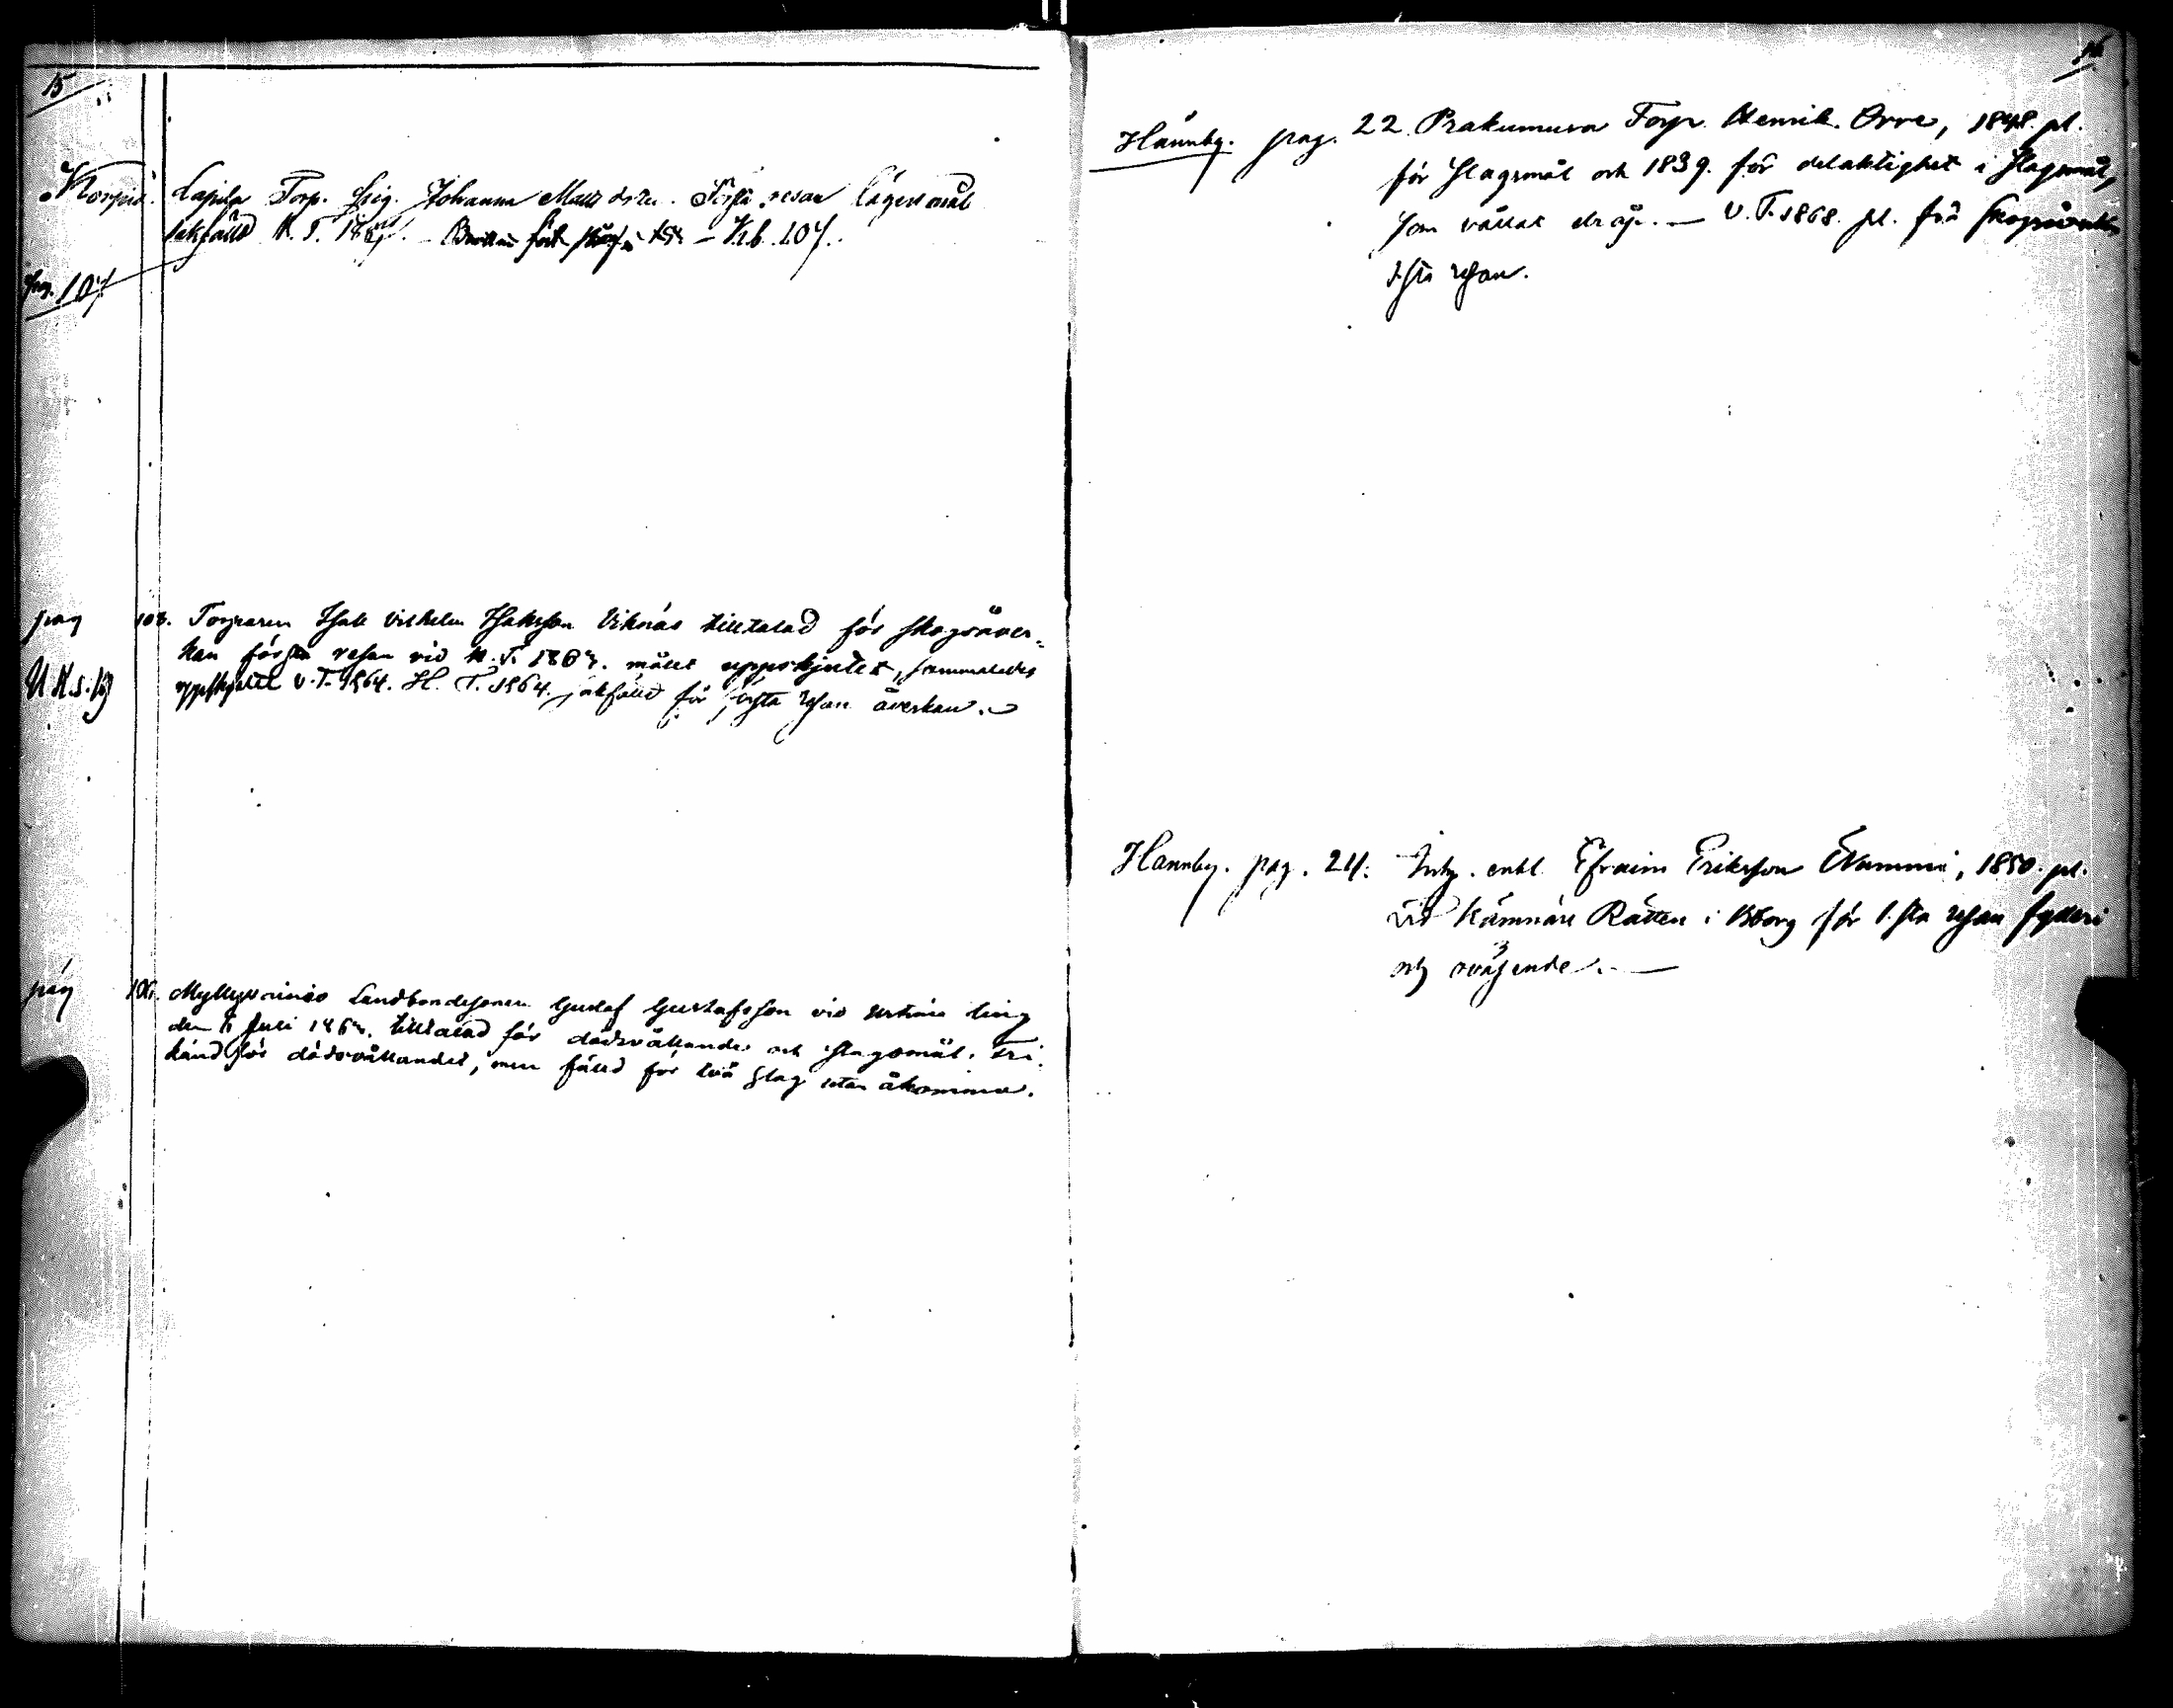 15
Korpis. Lapila Torp. Enig. Johanna Matts dotter. Första resan lägersmål
sakfälld H. T. — K.b. 107.
Pag. 107
pag 108. Torparen Isak Vilhelm Isaksson Viknäs tilltalad för skogsåver-
kan första resan vid H. T. 1863. målet uppskjutet, sammaledes
uppskjutet V. T. 1864. H. T. 1864. sakfälld för första resan åverkan.
pag 106. Myllyvainio Landbondesonen Gustaf Gustafsson vid urtima ting
den Juli 1863. tilltalad för dödsvållande och slagsmål. Fri
känd för dödsvållandet, men fälld för två slag utan åkomma.
16
Hännby. pag. 22. Prakumuva Torp. Henrik Orre, 1848. pl.
för slagsmål och 1839. för delaktighet i slagsmål,
som vållat dråp. — V. T. 1868. pl. för skogsåverkan
1sta resan.
Hannby. pag. 24. enkl. Efraim Eriksson Nummi, 1850. pl.
vid Kämnärs Rätten i för 1.sta resan fylleri
och oväsende. —